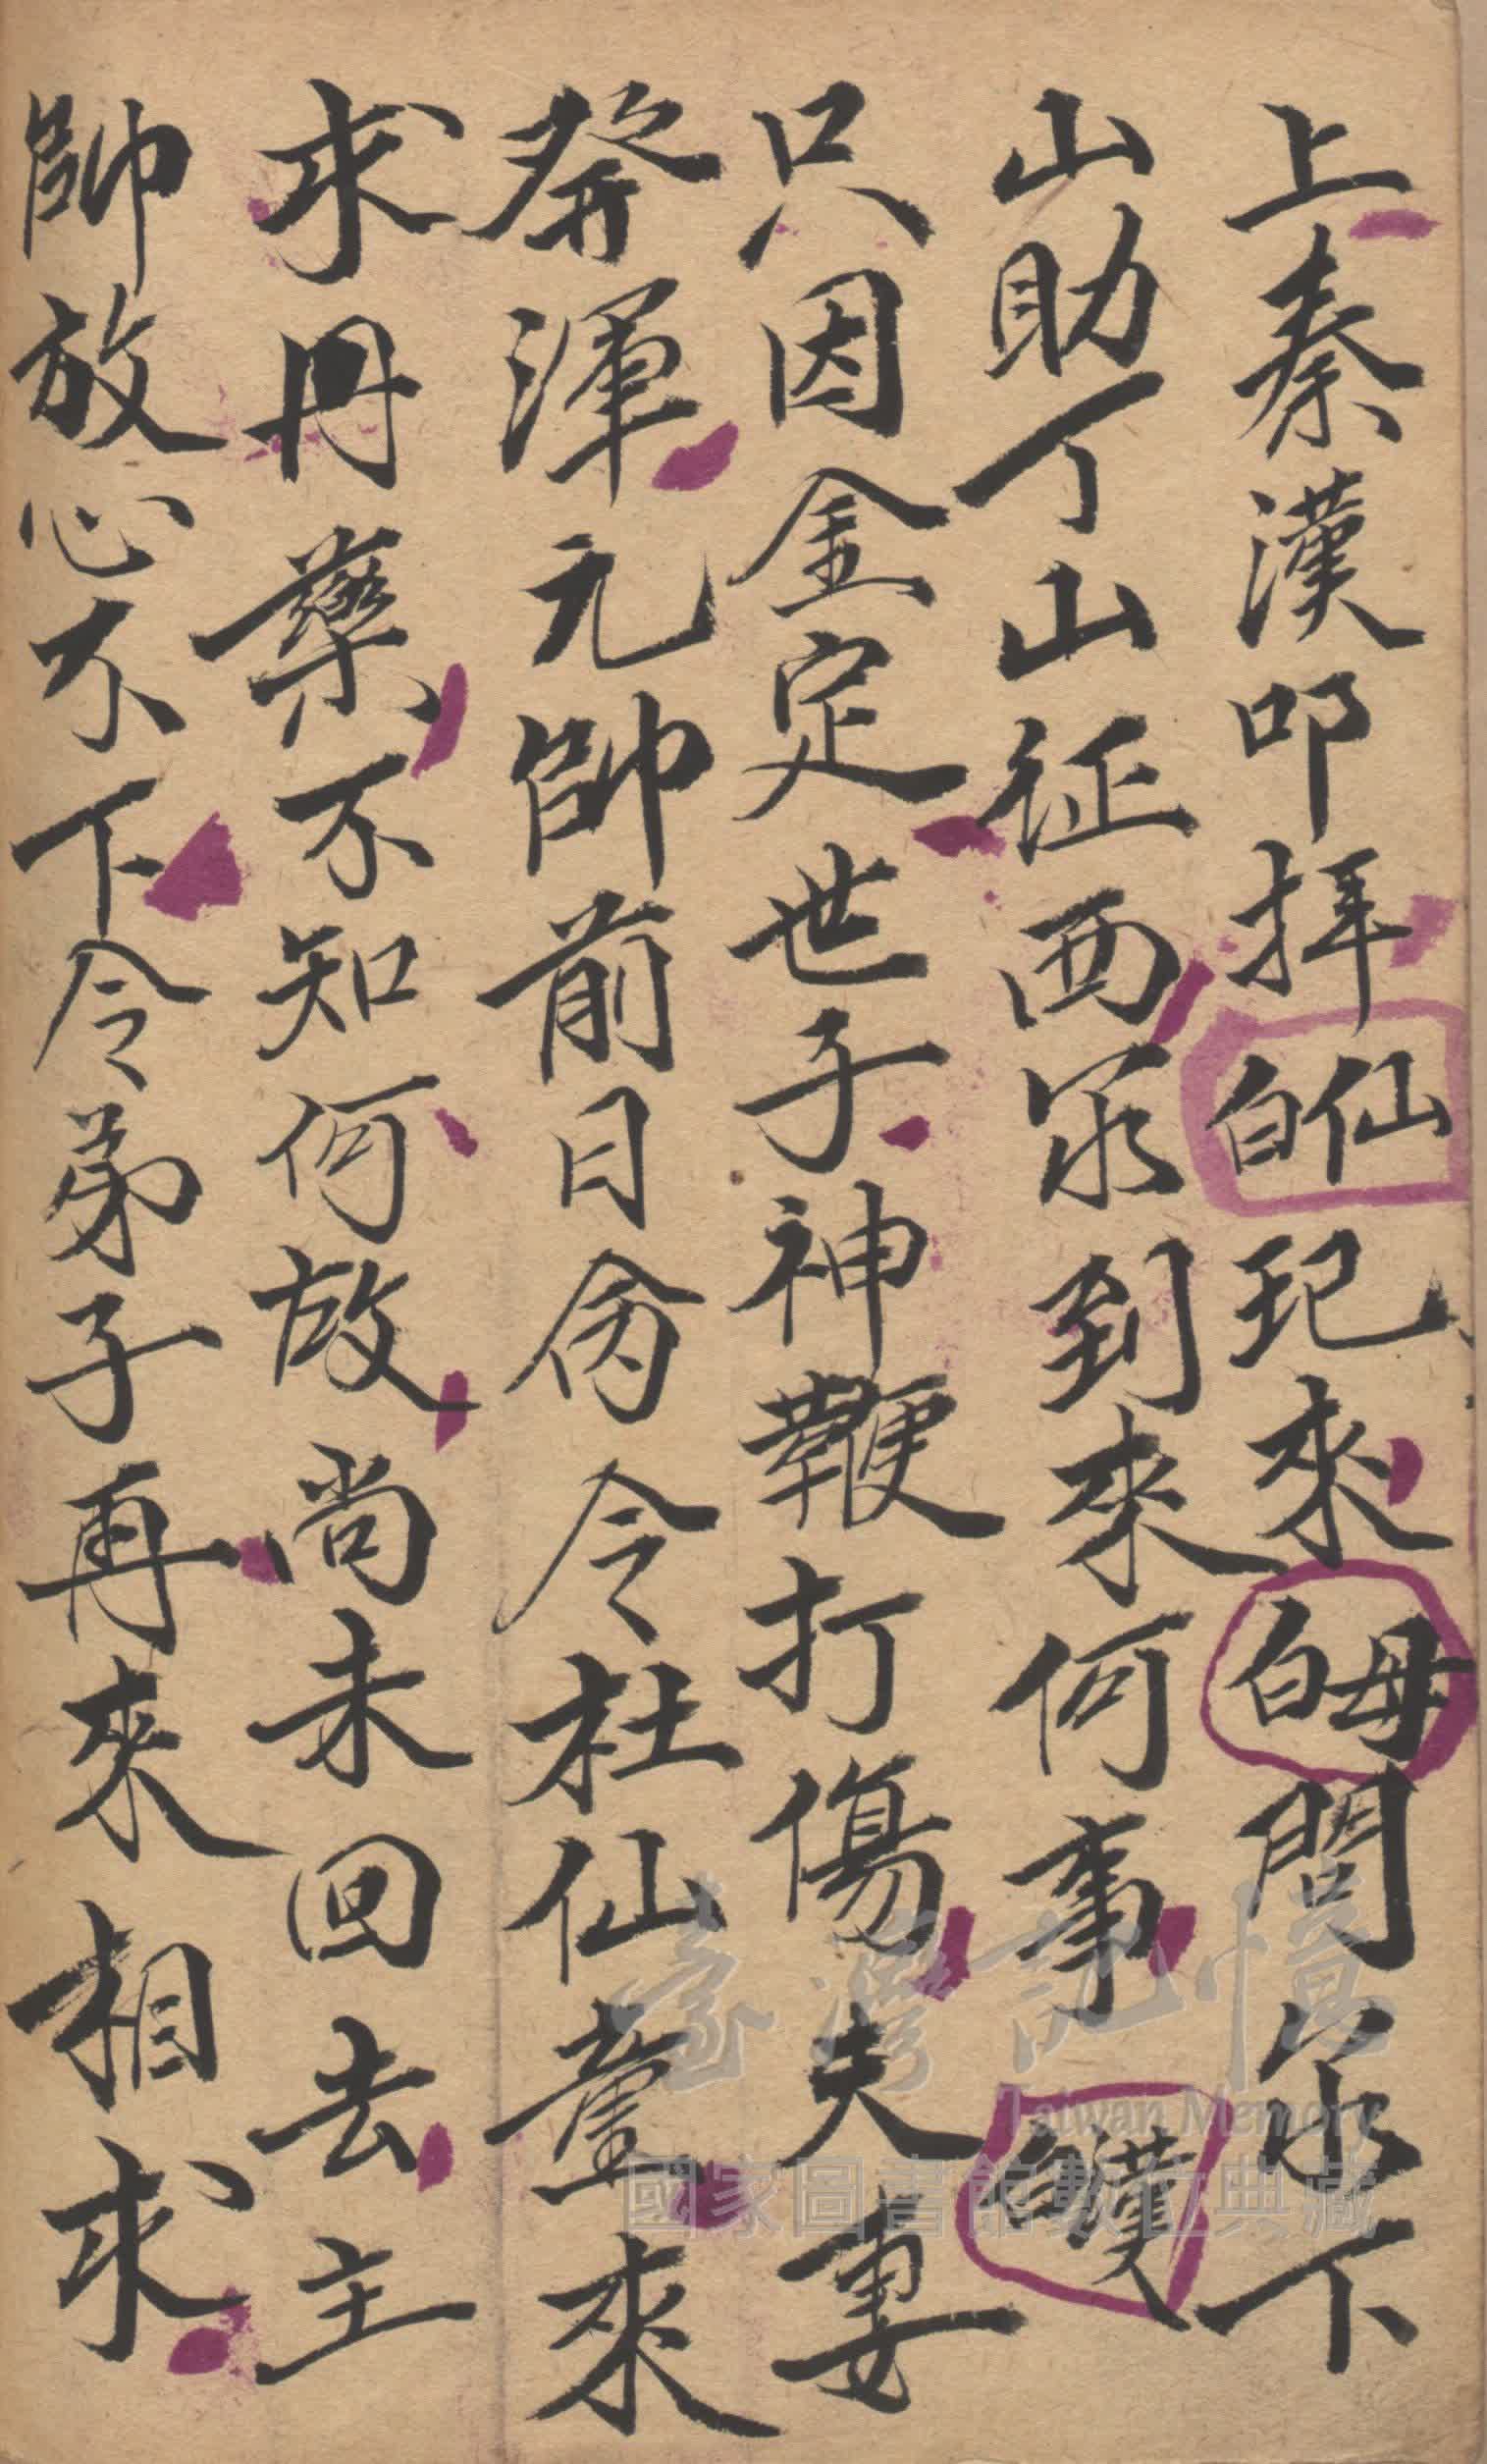 上秦漢叩拜仙白玘來母白問你下
山助丁山征西你到來何事漢白
只因金定世子神鞭打傷夫妻
發渾元帥前日命令杜仙童來
求丹藥不知何故尚未回去主
帥放心不下令弟子再來相求
臺灣記憶
Taiwan Memory
國家圖書館數位典藏